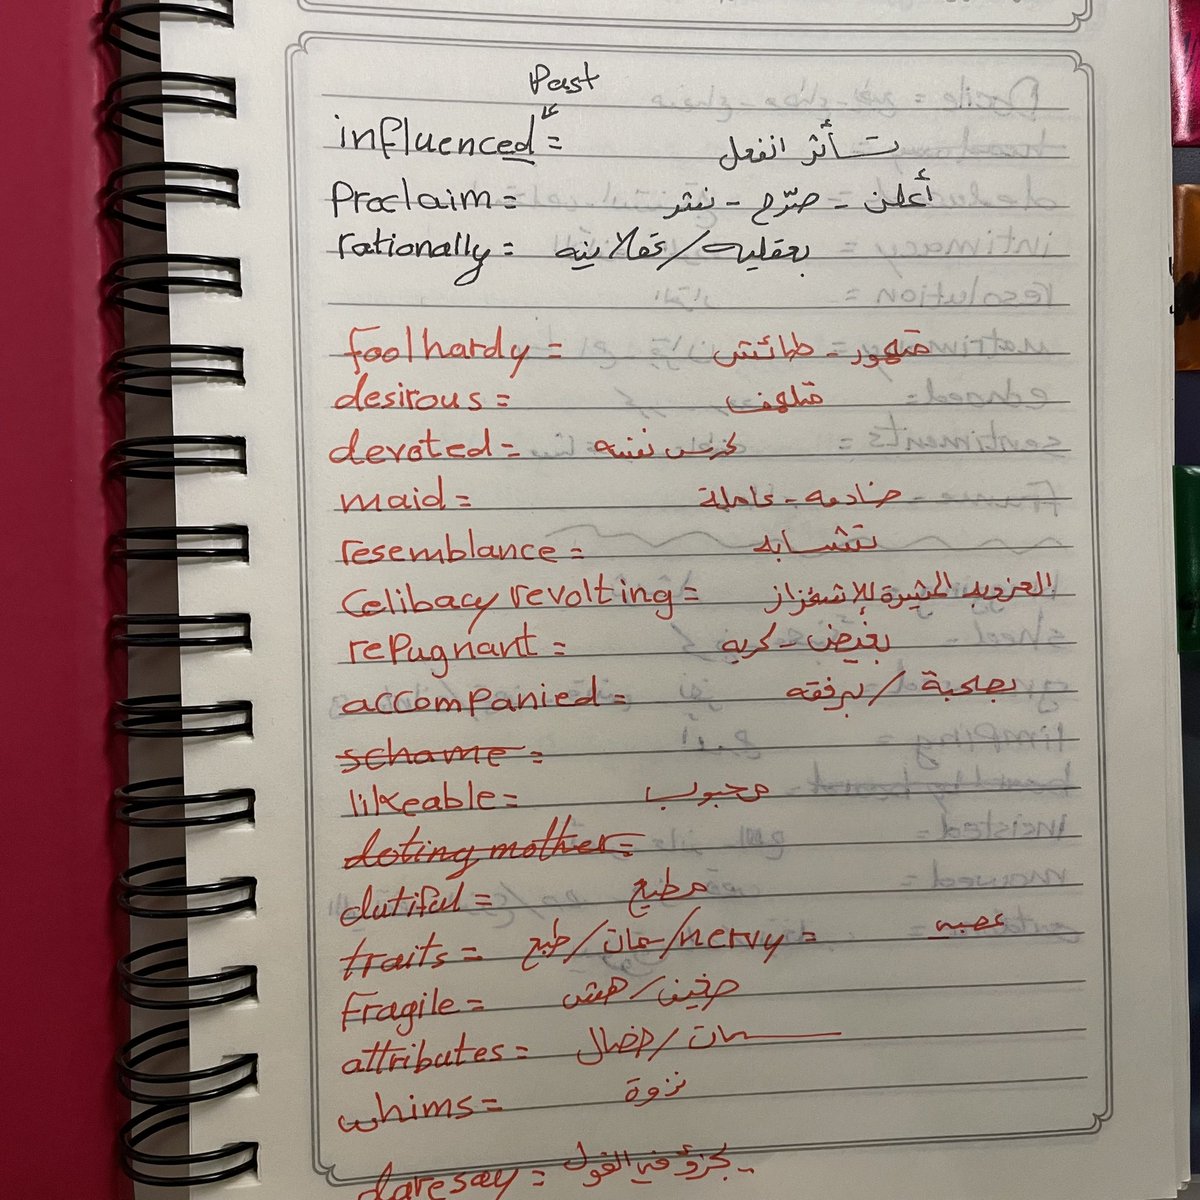 Past
influenced = تأثر انفعل
Proclaim = أعلن - صرّح - نشر
rationally = بعقليه / عقلانيه
foolhardy = متهور - طائش
desirous = متلهف
devoted = كرس نفسه
maid = خادمه - عاملة
resemblance = تشابه
Celibacy revolting = العزوبيه المثيرة للإشمئزاز
rePugnant = بغيض - كريه
accompanied = بصحبة / برفقه
schame =
likeable = محبوب
doting mother =
dutiful = مطيع
traits = طبع / سمات / nervy = عصبي
Fragile = ضعيف / هش
attributes = سمات / خصال
whims = نزوة
daresay = يجرؤ في القول